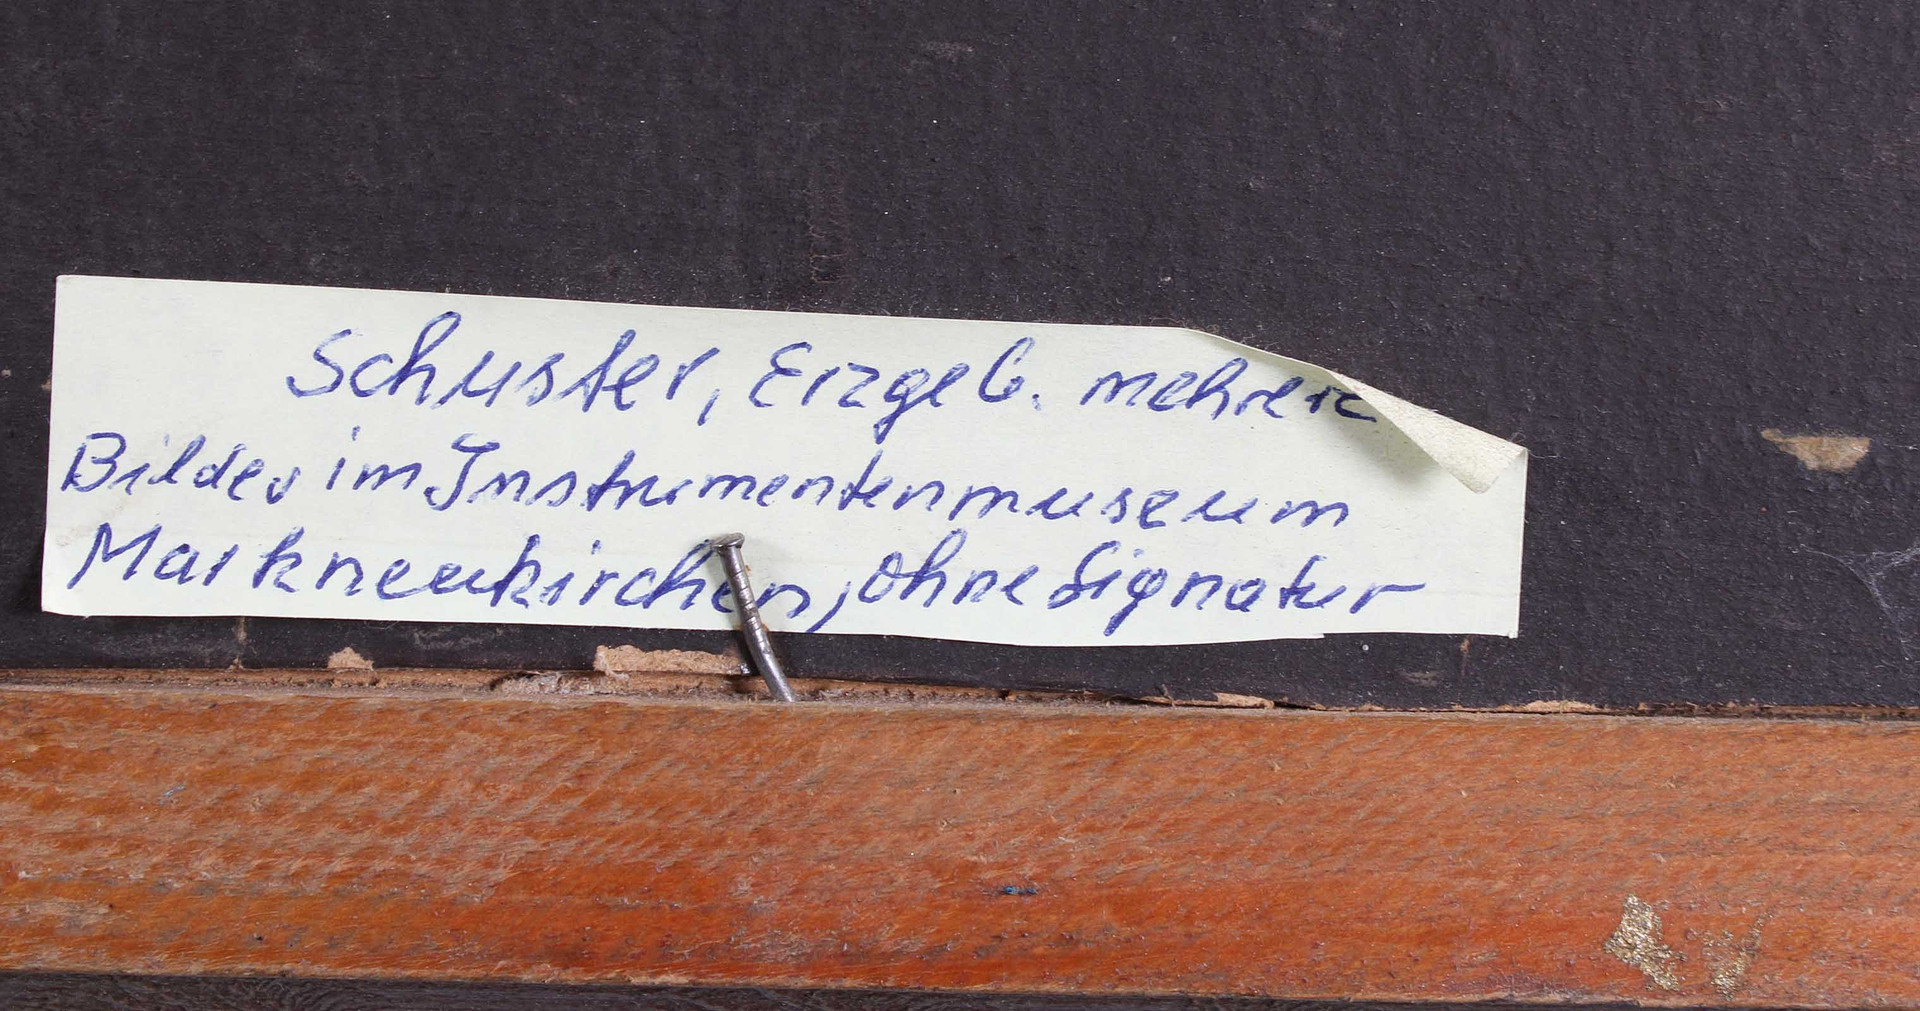 Schuster, Erzgeb. mehrere
Bilder im Instrumentenmuseum
Markneukirchen, ohne Signatur